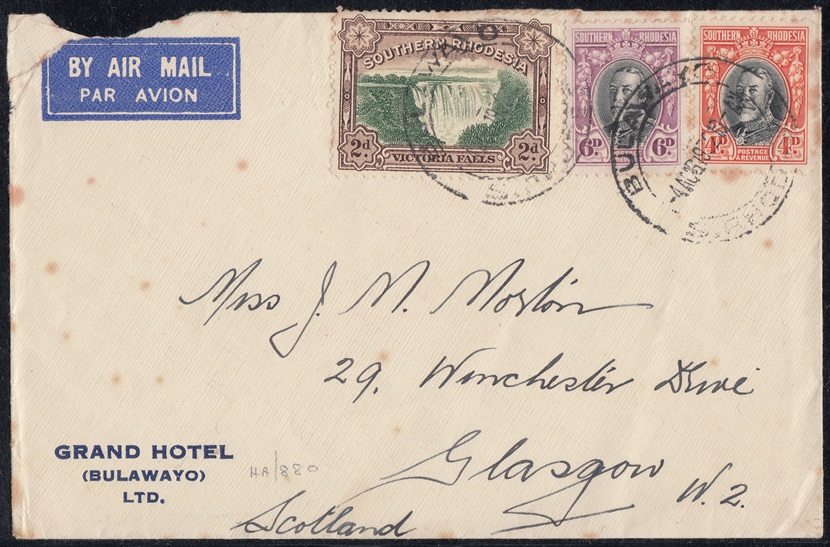 BY AIR MAIL
PAR AVION
SOUTHERN RHODESIA
2d 2d
VICTORIA FALLS
SOUTHERN RHODESIA
6D 6D
SOUTHERN RHODESIA
4D 4D
POSTAGE
& REVENUE
BULAWAYO
Miss J. M. Morton
29, Winchester Drive
Glasgow W. 2.
Scotland
GRAND HOTEL
(BULAWAYO)
LTD.
HA/880